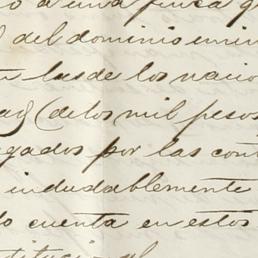 o a una finca q
l del dominio emin
las de los nacio
ad (de los mil pesos
egados por las con
indudablemente
do cuenta en estos